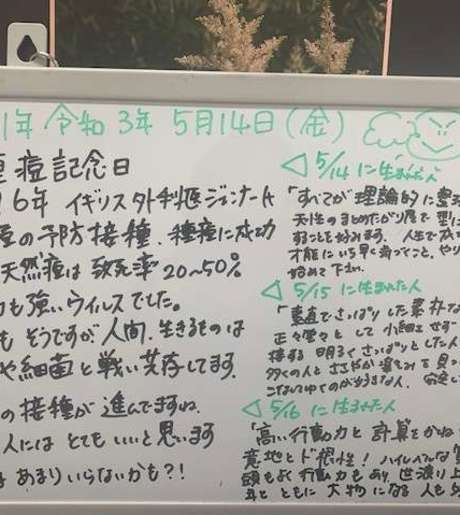 1年 令和3年 5月14日(金)
痘記念日
6年 イギリス 外科医ジェンナーが
の予防接種、種痘に成功
天然痘は 致死率20~50%
も強いウイルスでした。
も そうですが 人間、生きるものは
や細菌と戦い 共存してます。
の接種が 進んでますね
人には とてもいいと思います
は あまりいらないかも?!
◁ 5/14 に生まれた人
「すべてが 理論的に整
天性の まとめたがり屋で 型に
することを好みます。 人生で成功
才能に いち早く
始めて下さい。
◁ 5/15 に生まれた人
「素直で さっぱりした 素朴な
正々堂々と して 小細工せず
接する 明るく さっぱりとした人
多くの人と
◁ 5/16 に生まれた人
「高い行動力と 計算をかね
意地とド根性! ハイレベルな
頭もよく 行動力もあり 世渡り上
年とともに 大物になる人も